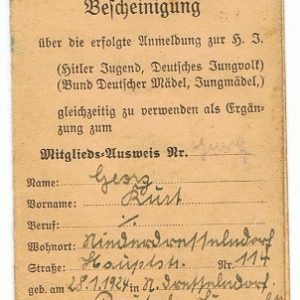 Bescheinigung
über die erfolgte Anmeldung zur H. J.
(Hitler Jugend, Deutsches Jungvolk)
(Bund Deutscher Mädel, Jungmädel,)
gleichzeitig zu verwenden als Ergän-
zung zum
Mitglieds-Ausweis Nr.
Name: Georg
Vorname: Kurt
Beruf:
Wohnort: Niederdresselndorf
Straße: Hauptstr. Nr. 114
geb. am 28.1.1924 in N. Dresselndorf